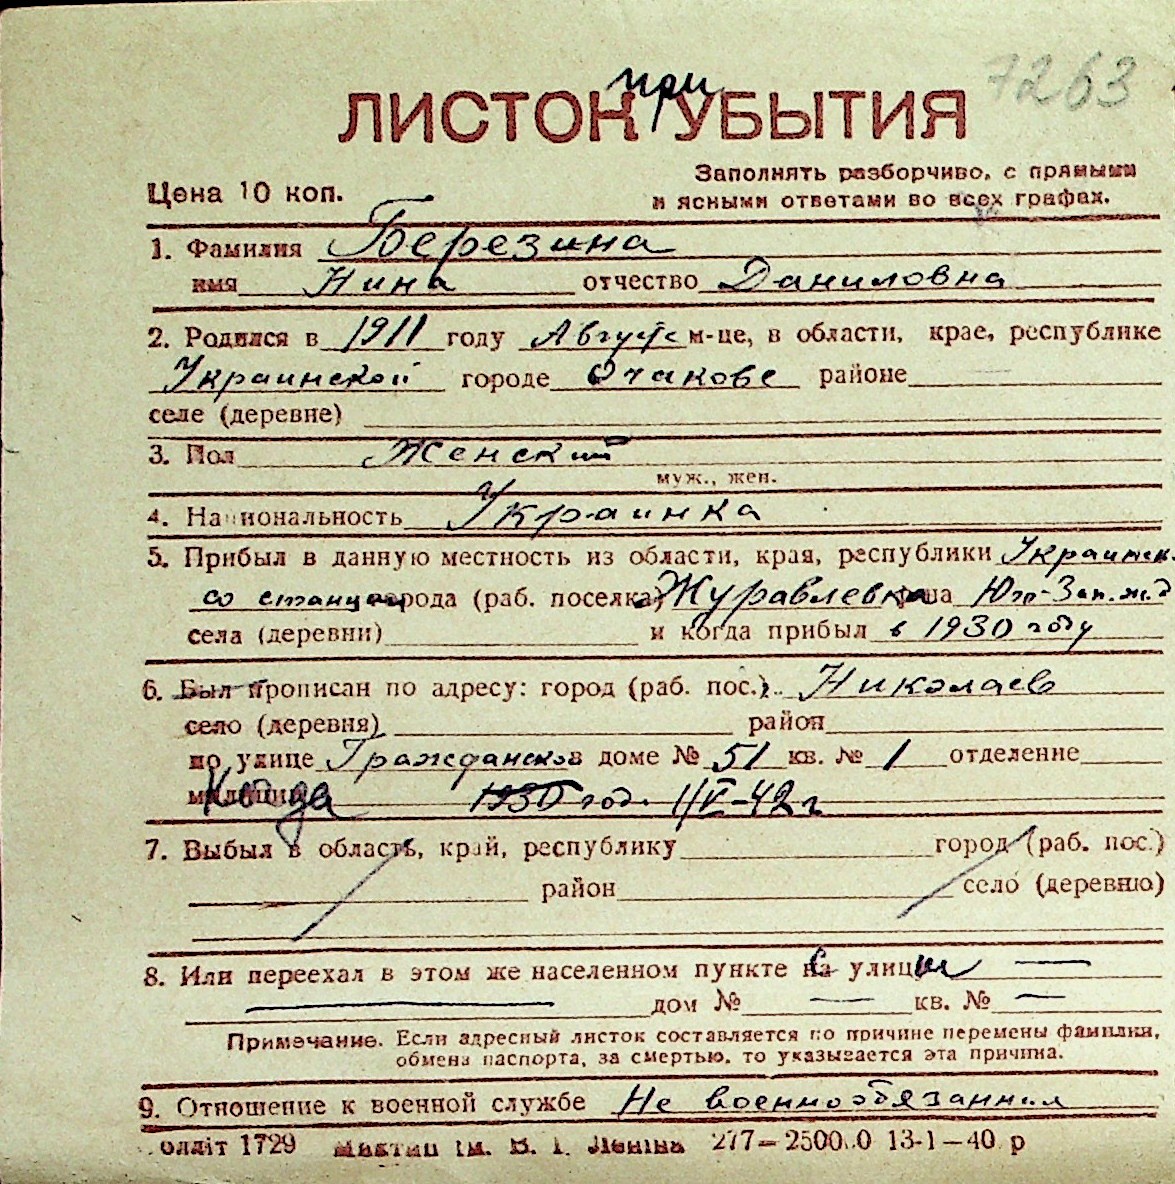 7263
при
ЛИСТОК УБЫТИЯ
Цена 10 коп.
Заполнять разборчиво, с прямыми
и ясными ответами во всех графах.
1. Фамилия Березина
имя Нина отчество Даниловна
2. Родился в 1911 году Август м-це, в области, крае, республике
Украинской городе Очакове районе
селе (деревне)
3. Пол Женский
муж., жен.
4. Национальность Украинка
5. Прибыл в данную местность из области, края, республики Украинск.
со станции города (раб. поселка) Журавлевка Юго-Зап.ж.д
села (деревни) и когда прибыл в 1930 году
6. Был прописан по адресу: город (раб. пос.) Николаев
село (деревня) район
по улице Гражданской доме № 51 кв. № 1 отделение
милиции Когда 1930 год. 1/V-42 г
7. Выбыл в область, край, республику город (раб. пос.)
район село (деревню)
8. Или переехал в этом же населенном пункте с улицы —
— дом № — кв. № —
Примечание. Если адресный листок составляется по причине перемены фамилии,
обмена паспорта, за смертью, то указывается эта причина.
9. Отношение к военной службе Не военнообязанная
Облліт 1729 ім. В. І. Леніна 277—2500.0 13-1—40 р